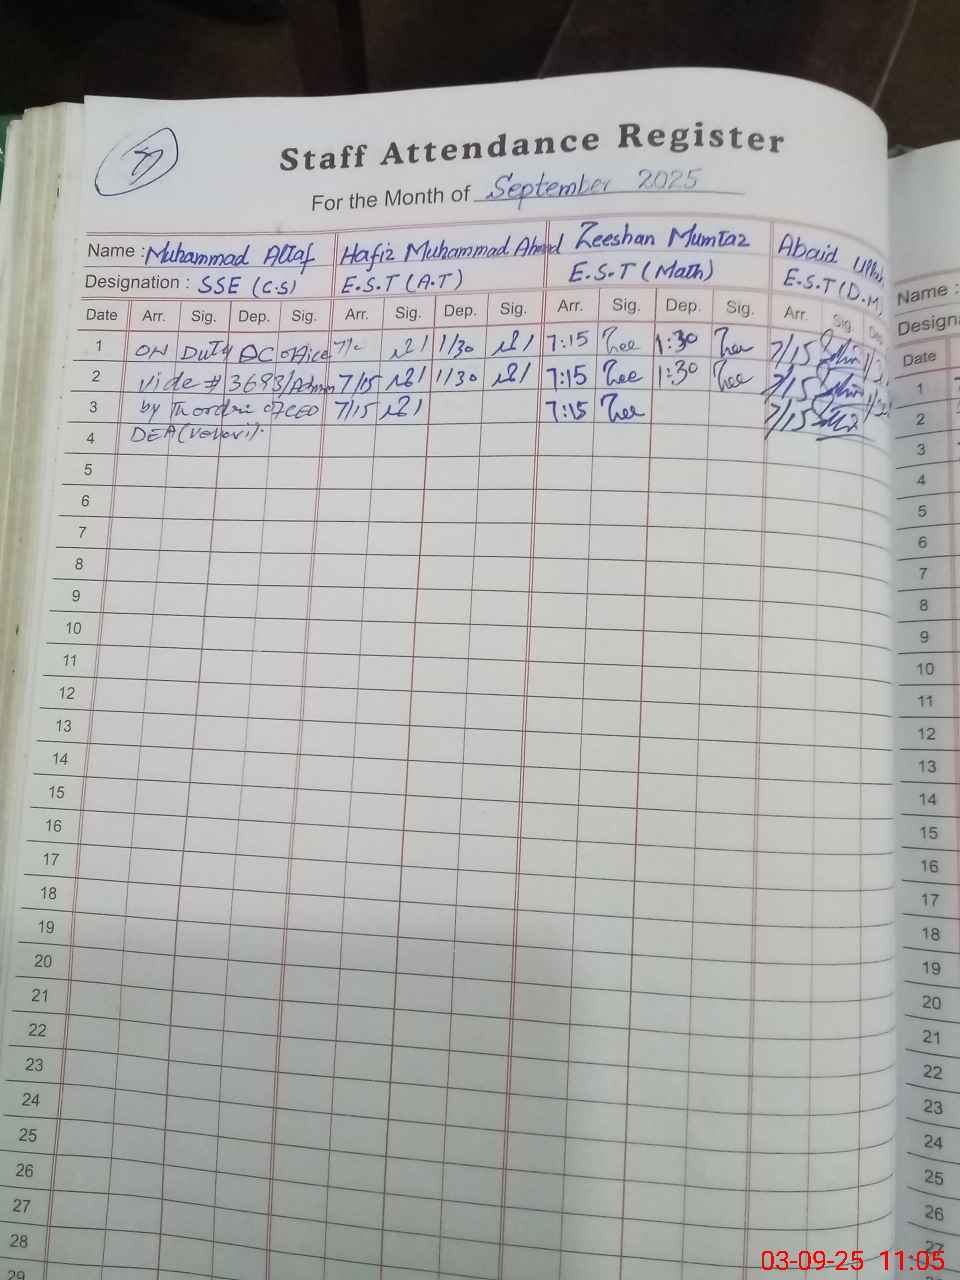 Staff Attendance Register
For the Month of September 2025
Name : Muhammad Altaf Hafiz Muhammad Zeeshan Mumtaz Abaid
Designation : SSE (C.S) E.S.T (A.T) E.S.T (Math) E.S.T (D.M)
Date Arr. Sig. Dep. Sig. Arr. Sig. Dep. Sig. Arr. Sig. Dep. Sig. Arr. Sig. Dep
1 ON Duty DC office 1/30 7:15 Zee 1:30 Zee 7/15
2 vide # 3693/Admn 7/15 1/30 7:15 Zee 1:30 Zee 7/15
3 by The order of CEO 7/15 7:15 Zee 7/15
4 DEA (Vehari).
5
6
7
8
9
10
11
12
13
14
15
16
17
18
19
20
21
22
23
24
25
26
27
28
29
Name :
Date
1
2
3
4
5
6
7
8
9
10
11
12
13
14
15
16
17
18
19
20
21
22
23
24
25
26
27
03-09-25 11:05